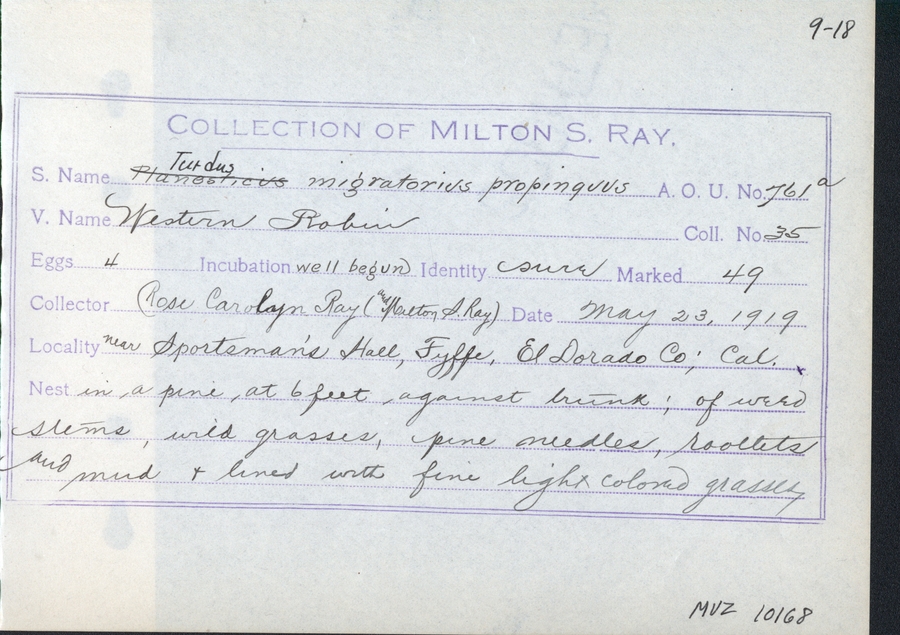 9-18
COLLECTION OF MILTON S. RAY.
Turdus
S. Name Planesticus migratorius propinquus A. O. U. No. 761a
V. Name Western Robin Coll. No. 35
Eggs 4 Incubation well begun Identity sure Marked 49
Collector Rose Carolyn Ray (and Milton S. Ray) Date May 23, 1919
Locality near Sportsman's Hall, Fyffe, El Dorado Co; Cal.
Nest in a pine, at 6 feet, against trunk; of weed
stems, wild grasses, pine needles, rootlets
and mud + lined with fine light colored grasses
MVZ 10168